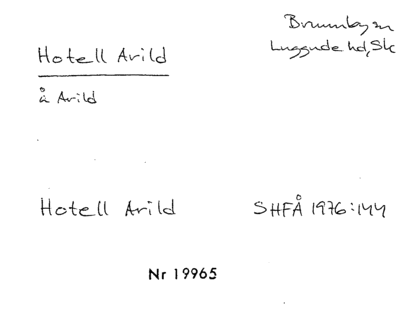 Hotell Arild
Brunnby sn
Luggude hd, Sk
å Arild
Hotell Arild
SHFÅ 1976:144
Nr 19965